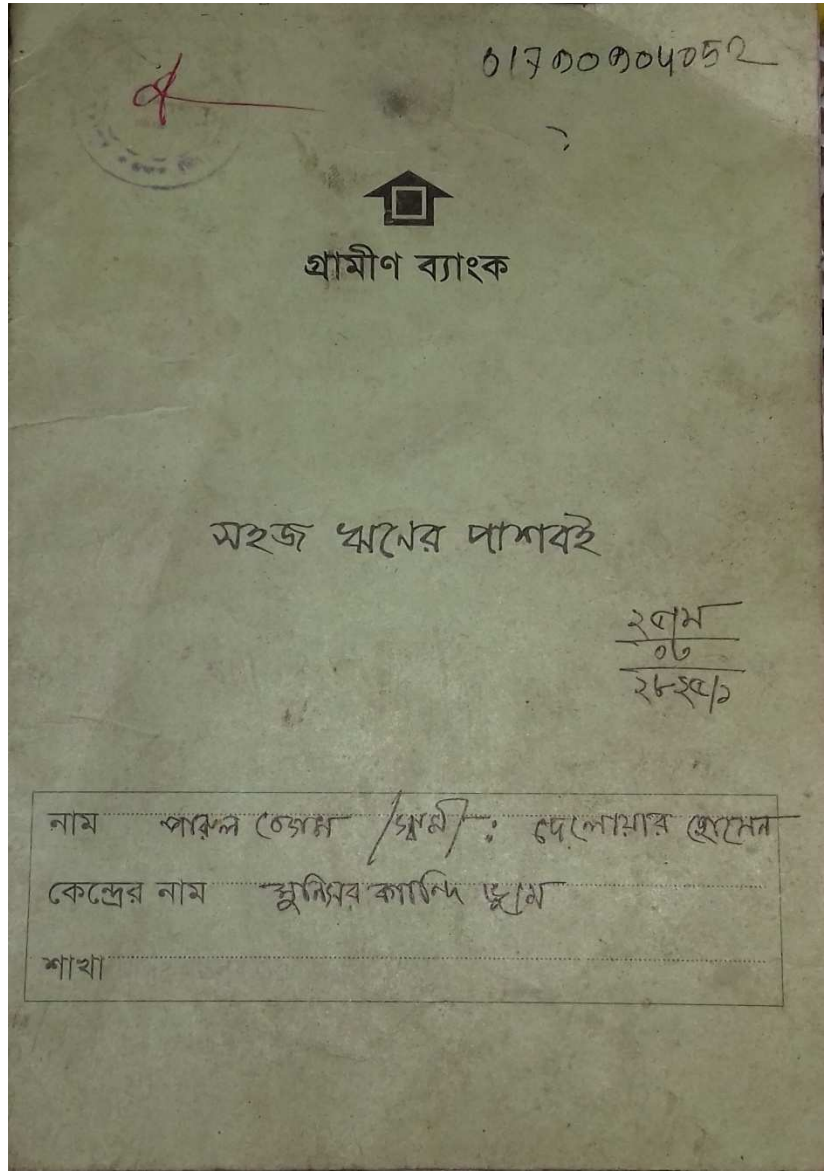 01700904052
গ্রামীণ ব্যাংক
সহজ ঋনের পাশবই
২৫ম
০৮
২৮২৫/১
নাম পারুল বেগম /স্বামী : দেলোয়ার হোসেন
কেন্দ্রের নাম কান্দি
শাখা